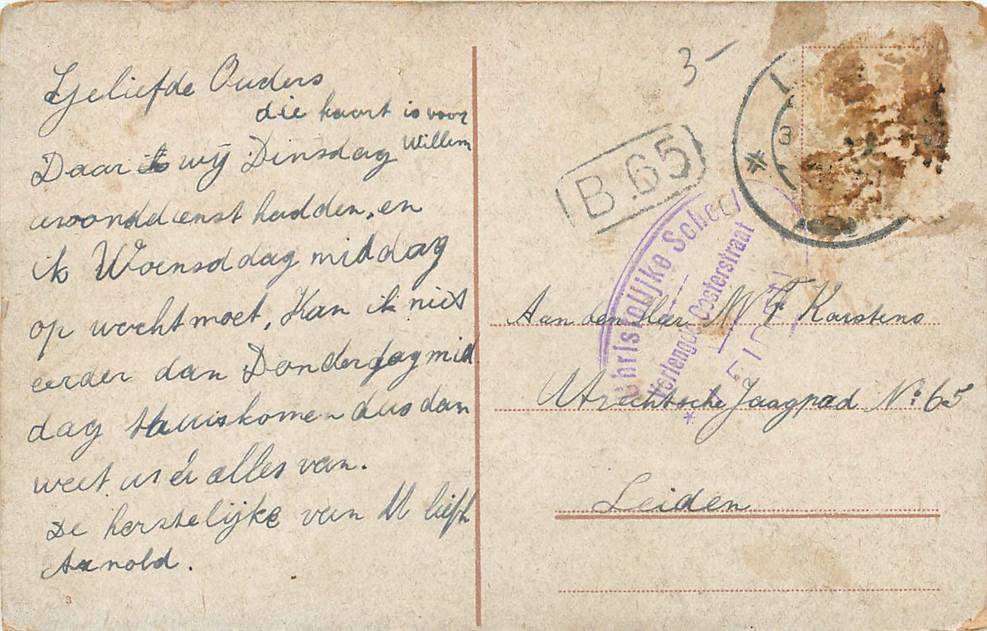 Geliefde Ouders
die kaart is voor
Willem
Daar wij Dinsdag
avonddienst hadden, en
ik Woensddag middag
op wacht moet, Kan ik niet
eerder dan Donderdagmid
dag thuiskomen dus dan
weet u er alles van.
De hartelijke van U liefh
Arnold.
3
3-
B 65
Christelijke School
Verlengde Oosterstraat
Aan den Heer W F Karstens
Utrechtsche Jaagpad No 65
Leiden